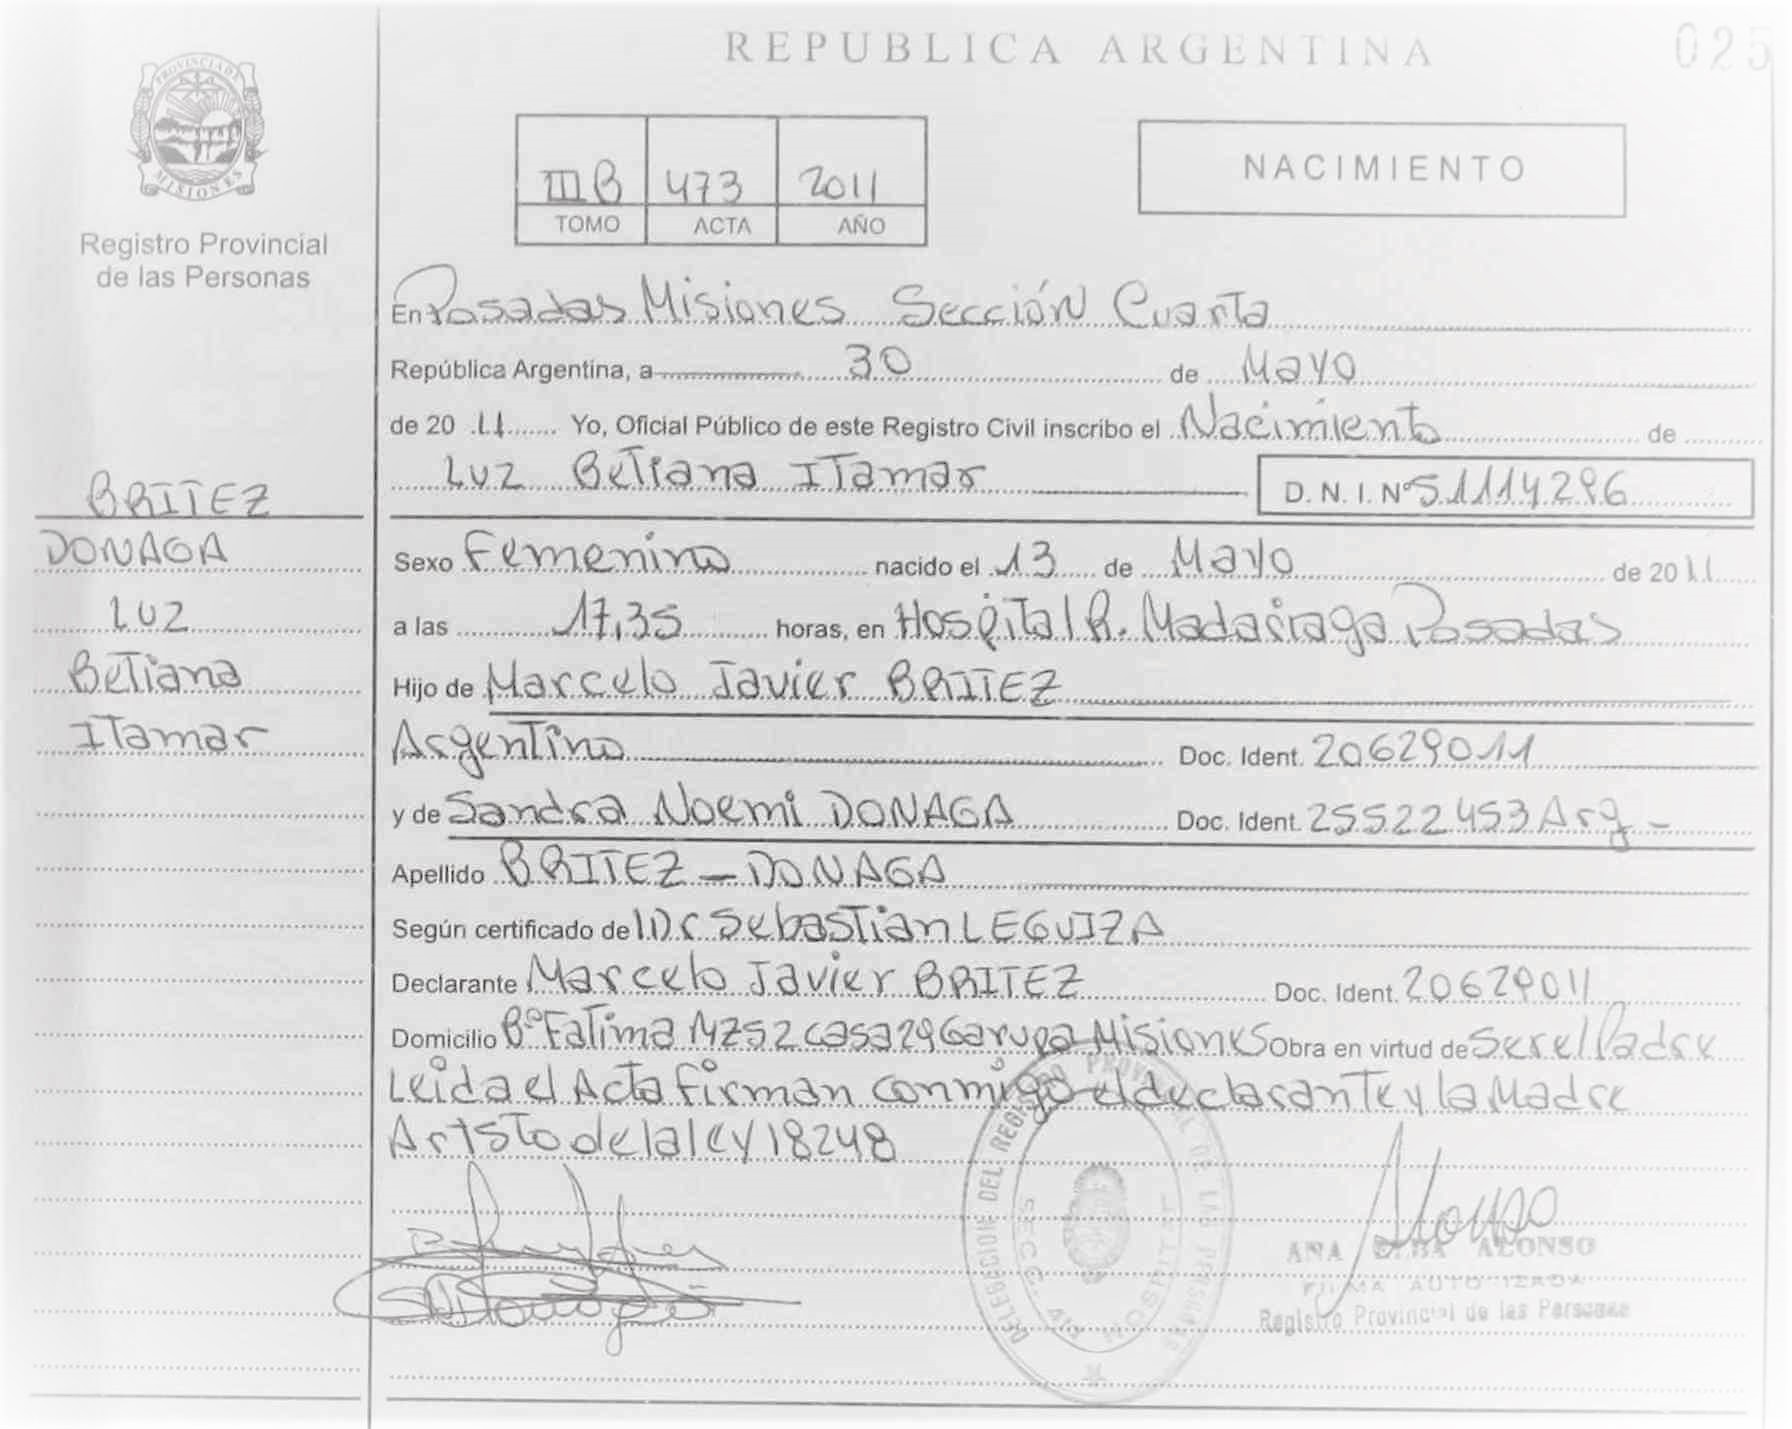 REPUBLICA ARGENTINA
025
PROVINCIA DE MISIONES
Registro Provincial
de las Personas
III B 473 2011
TOMO ACTA AÑO
NACIMIENTO
BRITEZ
DONAGA
LUZ
Betiana
ITamar
En Posadas Misiones Sección Cuarta
República Argentina, a 30 de Mayo
de 20 11 Yo, Oficial Público de este Registro Civil inscribo el Nacimiento de
LUZ Betiana ITamar D.N.I. Nº 51114296
Sexo Femenino nacido el 13 de Mayo de 2011
a las 17,35 horas, en Hospital R. Madariaga Posadas
Hijo de Marcelo Javier BRITEZ
Argentino Doc. Ident. 20629011
y de Sandra Noemi DONAGA Doc. Ident. 25522453 Arg -
Apellido BRITEZ - DONAGA
Según certificado de Dr Sebastian LEGUIZA
Declarante Marcelo Javier BRITEZ Doc. Ident. 20629011
Domicilio Bº Fatima MZ52 casa 29 Garupa Misiones Obra en virtud de Ser el Padre
Leida el Acta firman conmigo el declarante y la Madre
Art 5to de la ley 18248
DELEGACION DEL REGISTRO PROVINCIAL DE LAS PERSONAS
HOSPITAL
ANA ELBA ALONSO
FIRMA AUTORIZADA
Registro Provincial de las Personas